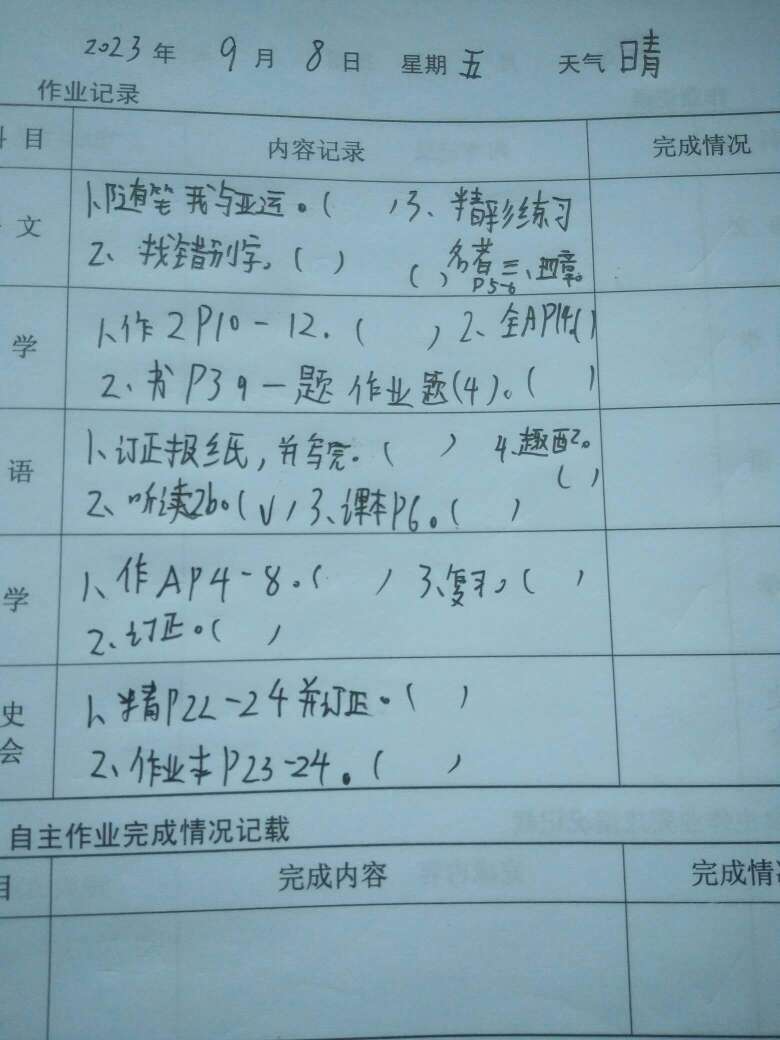 2023年 9月 8日 星期五 天气 晴
作业记录
目 内容记录 完成情况
文 1、随笔 我与亚运。( ) 3、精彩练习
2、找错别字。( ) ( ) 名著 三、四章。
P5-6
学 1、作2 P10-12. ( ) 2、全AP14.( )
2、书P39一题 作业题(4)。( )
语 1、订正报纸,并写完。( ) 4、趣配2。
( )
2、听读2b。(√) 3、课本P6。( )
学 1、作AP4-8。( ) 3、复习。( )
2、订正。( )
史 1、精P22-24并订正。( )
会 2、作业本P23-24。( )
自主作业完成情况记载
目 完成内容 完成情